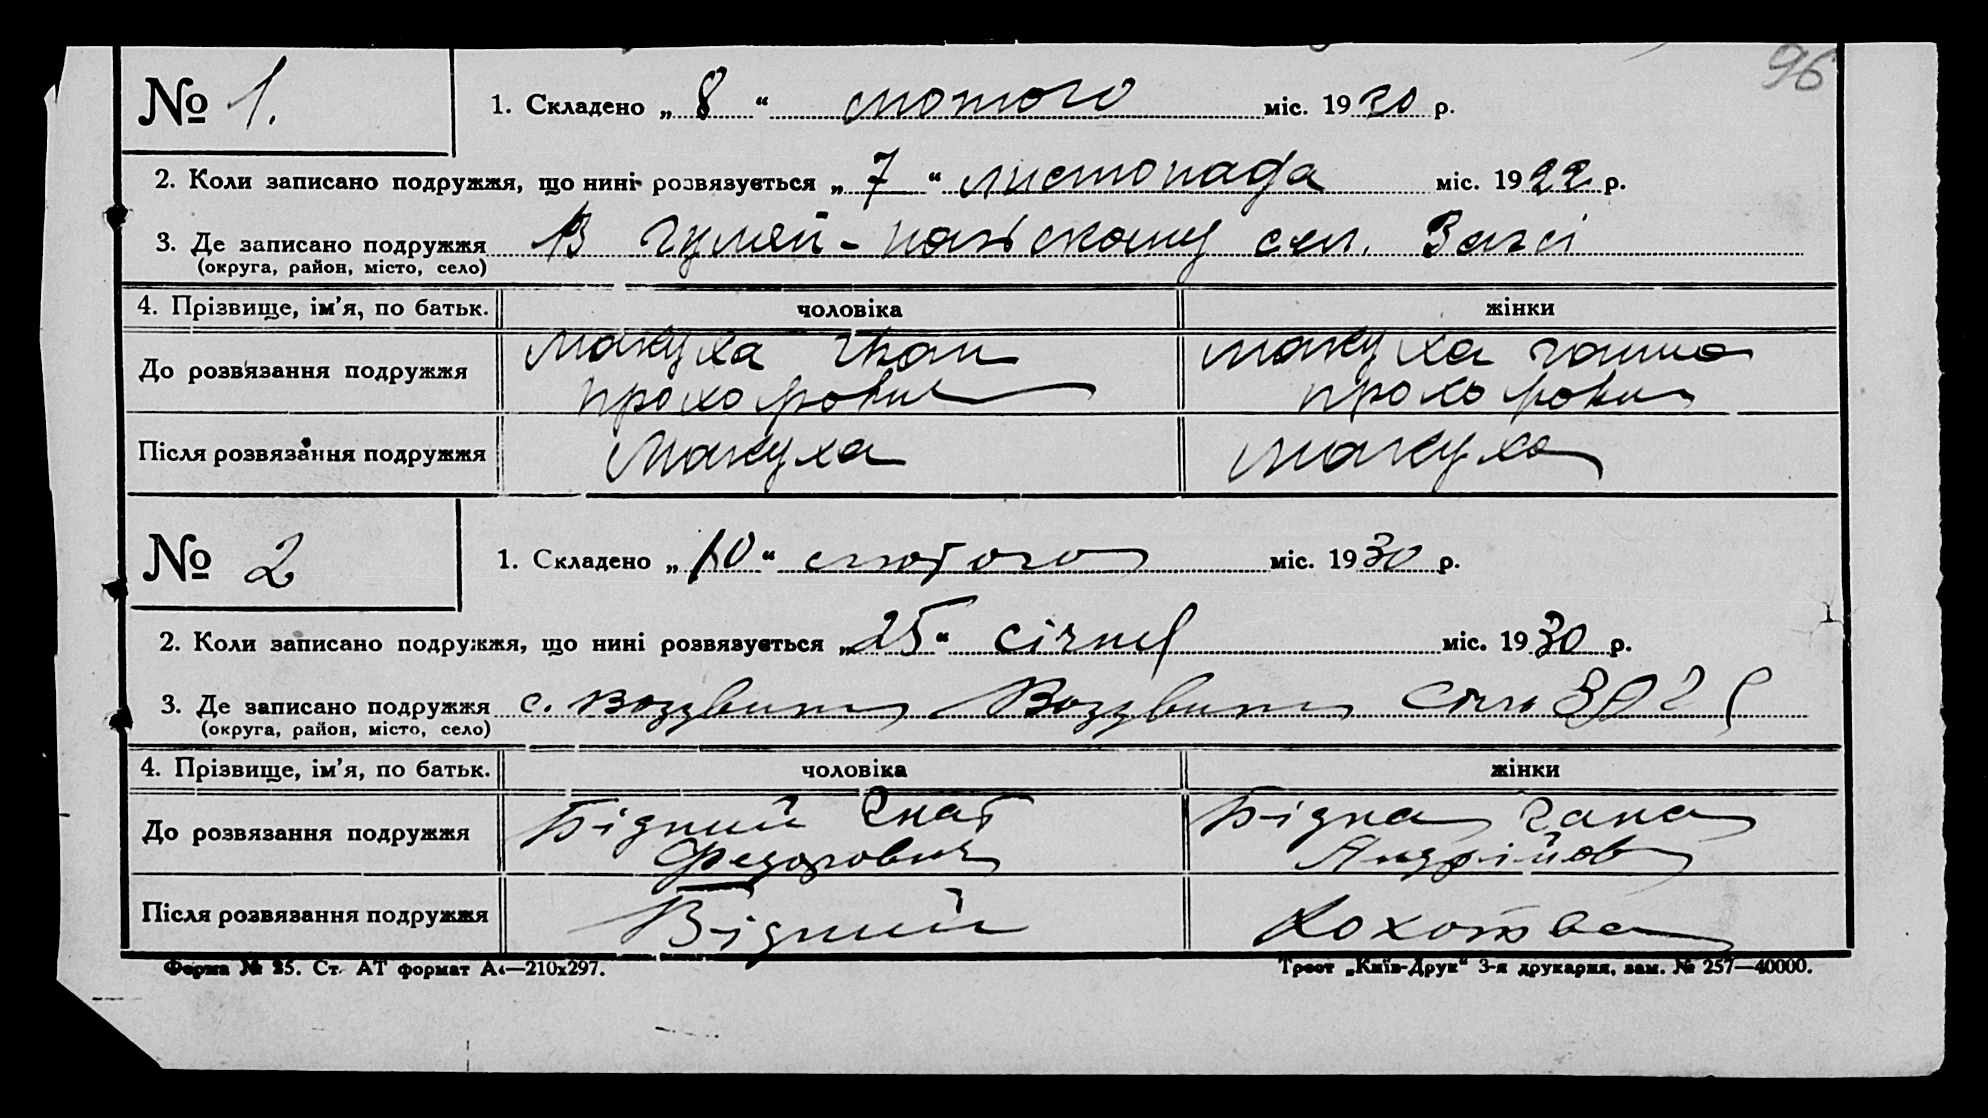 96
№ 1. 1. Складено „ 8 “ лютого міс. 1930 р.
2. Коли записано подружжя, що нині розвязується „ 7 “ листопада міс. 1922 р.
3. Де записано подружжя В Гуляй-польскому сел. Загсі
(округа, район, місто, село)
4. Прізвище, ім’я, по батьк. чоловіка жінки
До розвязання подружжя Макуха Макуха Ганна
Прохорович Прохоровн
Після розвязання подружжя Макуха Макуха
№ 2 1. Складено „ 10 “ лютого міс. 1930 р.
2. Коли записано подружжя, що нині розвязується „ 25 “ січня міс. 1930 р.
3. Де записано подружжя с. Воздвиж Воздвиж
(округа, район, місто, село)
4. Прізвище, ім’я, по батьк. чоловіка жінки
До розвязання подружжя Бідний Гнат Бідна Гана
Федорович Андріїов
Після розвязання подружжя Бідний
Форма № 25. Ст. АТ формат А₄—210х297. Трест „Київ-Друк“ 3-я друкарня, зам. № 257—40000.